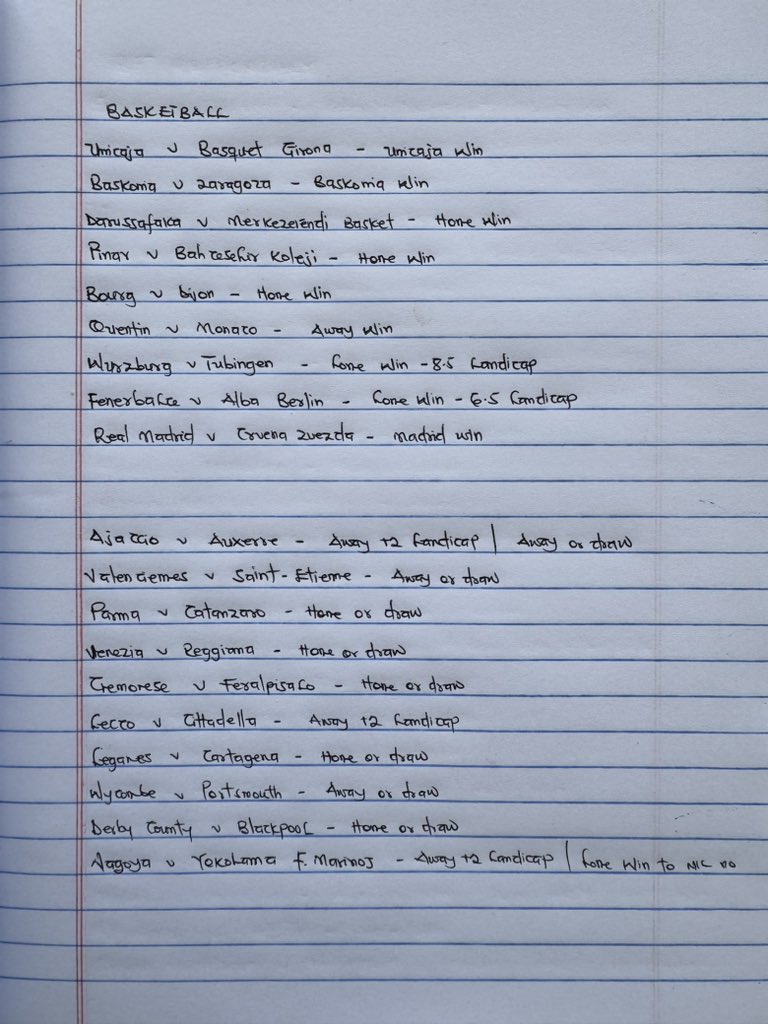 BASKETBALL
Unicaja v Basquet Girona - Unicaja Win
Baskonia v Zaragoza - Baskonia Win
Darussafaka v Merkezefendi Basket - Home Win
Pinar v Bahcesehir Koleji - Home Win
Bourg v Dijon - Home Win
Quentin v Monaco - Away Win
Wurzburg v Tubingen - home Win -8.5 handicap
Fenerbahce v Alba Berlin - home Win - 6.5 handicap
Real Madrid v Crvena Zvezda - Madrid win
Ajaccio v Auxerre - Away +2 handicap | Away or draw
Valenciennes v Saint-Etienne - Away or draw
Parma v Catanzaro - Home or draw
Venezia v Reggiana - Home or draw
Cremonese v Feralpisalo - Home or draw
Lecco v Cittadella - Away +2 handicap
Leganes v Cartagena - Home or draw
Wycombe v Portsmouth - Away or draw
Derby County v Blackpool - Home or draw
Nagoya v Yokohama F. Marinos - Away +2 handicap | home Win to NIL no